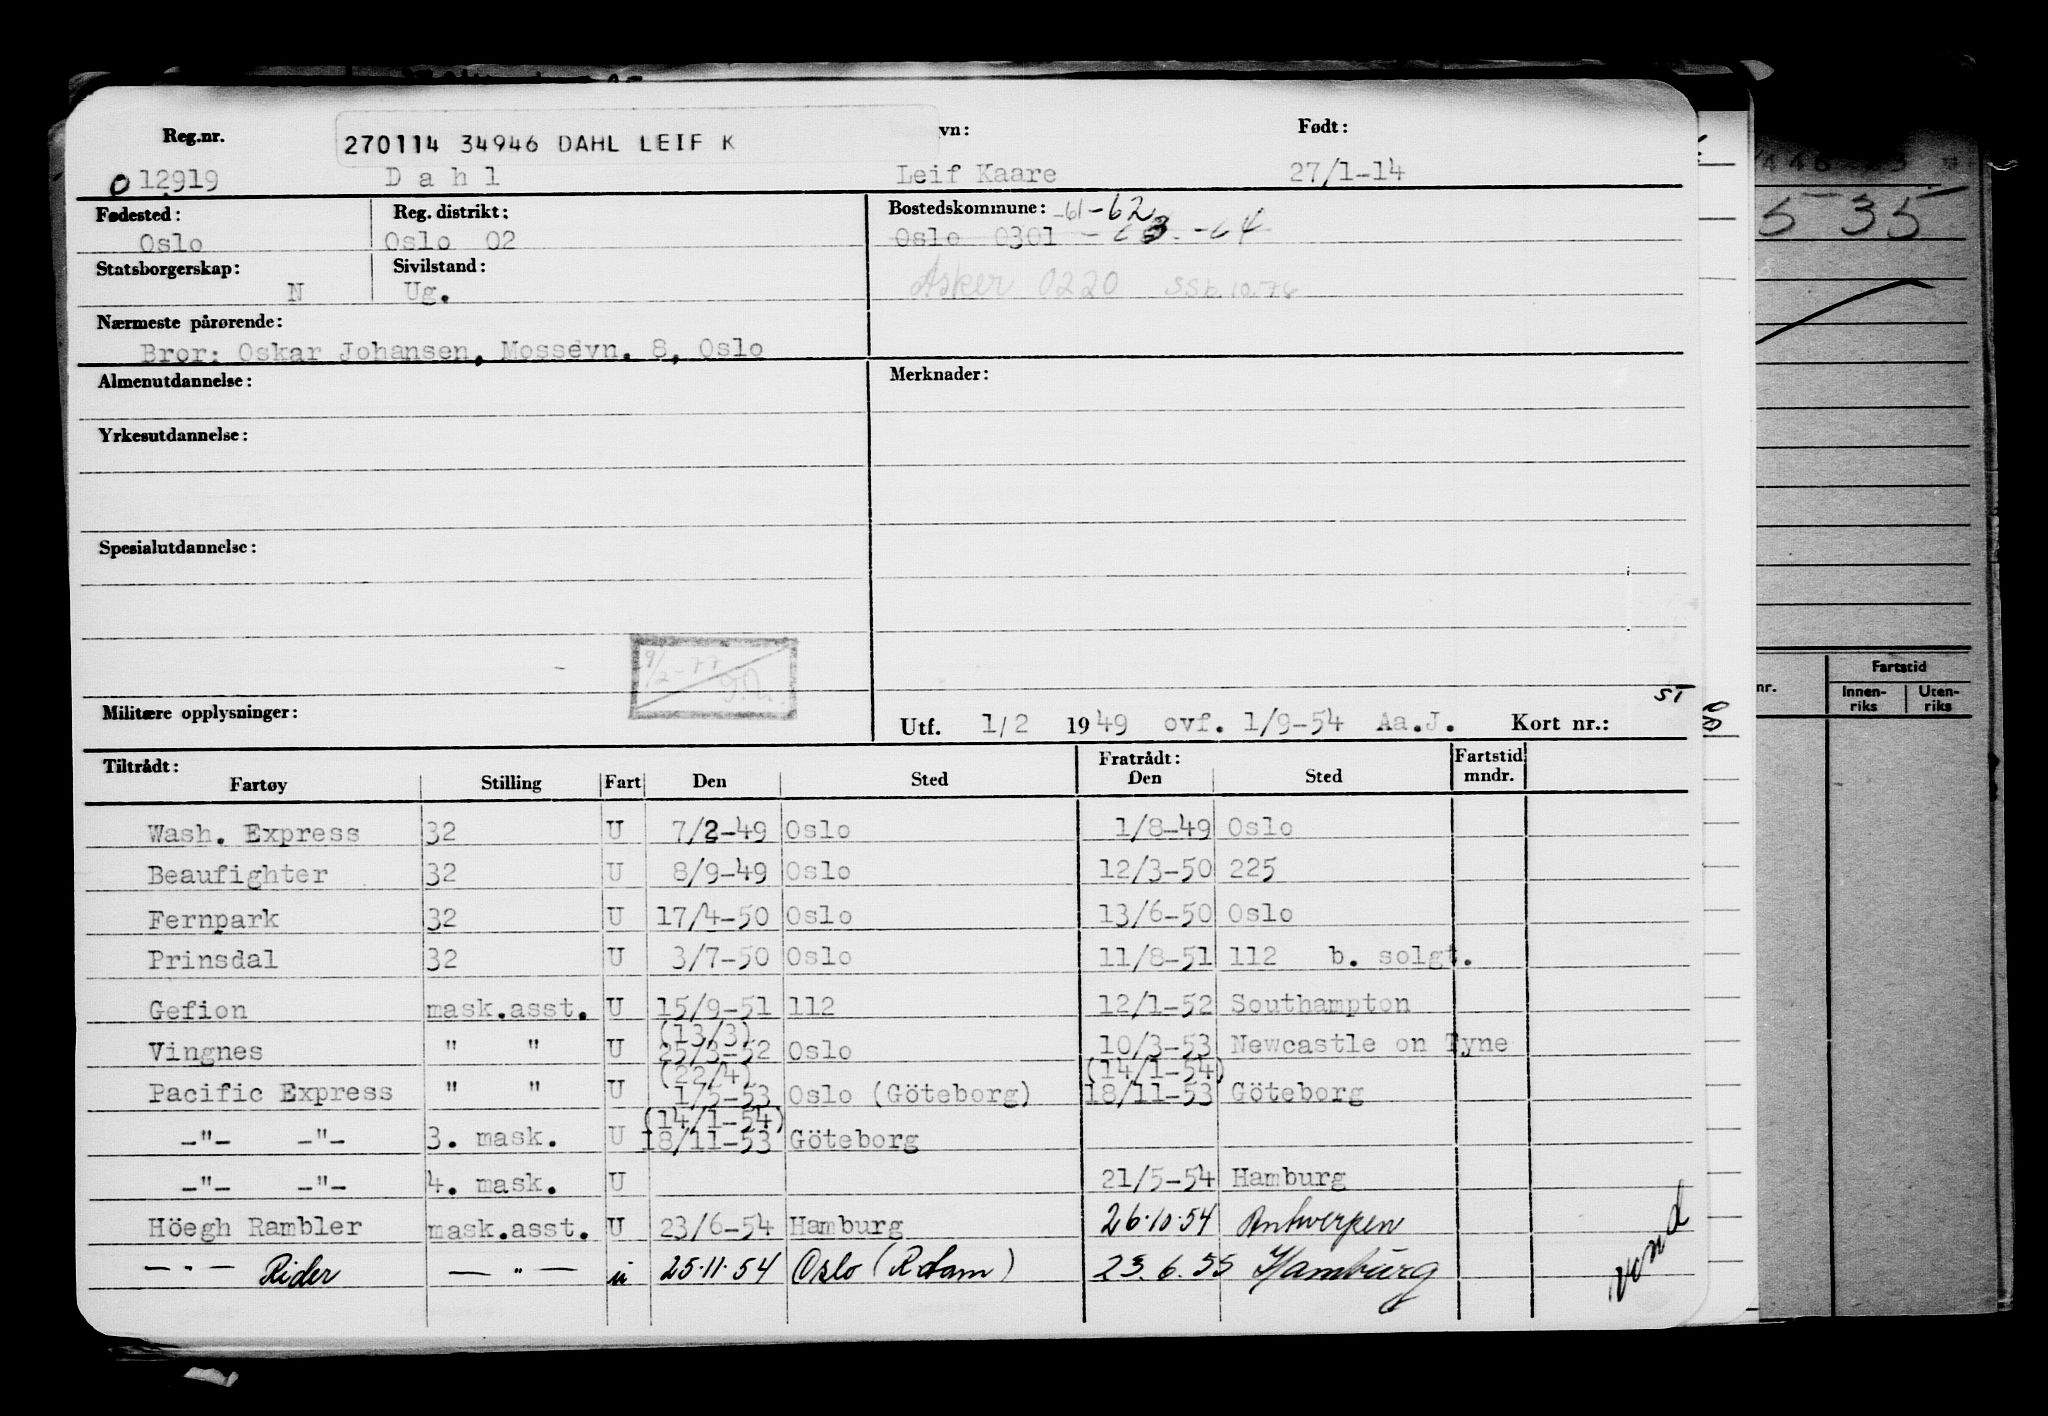 Reg.nr. 270114 34946 DAHL LEIF K vn: Født:
0 12919 Dahl Leif Kaare 27/1-14
Fødested: Reg. distrikt: Bostedskommune: -61-62
Oslo Oslo 02 Oslo 0301 -63 -64
Statsborgerskap: Sivilstand:
N Ug. Asker 0220 SSb. 10.76
Nærmeste pårørende:
Bror: Oskar Johansen, Mossevn. 8, Oslo
Almenutdannelse: Merknader:
Yrkesutdannelse:
Spesialutdannelse:
9/2-77
ST
Militære opplysninger: Utf. 1/2 1949 ovf. 1/9-54 Aa.J. Kort nr.:
Tiltrådt: Fratrådt: Fartstid
Fartøy Stilling Fart Den Sted Den Sted mndr.
Wash. Express 32 U 7/2-49 Oslo 1/8-49 Oslo
Beaufighter 32 U 8/9-49 Oslo 12/3-50 225
Fernpark 32 U 17/4-50 Oslo 13/6-50 Oslo
Prinsdal 32 U 3/7-50 Oslo 11/8-51 112 b. solgt.
Gefion mask.asst. U 15/9-51 112 12/1-52 Southampton
(13/3)
Vingnes " " U 25/3-52 Oslo 10/3-53 Newcastle on Tyne
(22/4) (14/1-54)
Pacific Express " " U 1/5-53 Oslo (Göteborg) 18/11-53 Göteborg
(14/1-54)
-"- -"- 3. mask. U 18/11-53 Göteborg
-"- -"- 4. mask. U 21/5-54 Hamburg
Höegh Rambler mask.asst. U 23/6-54 Hamburg 26.10.54 Antwerpen
— " — Rider — " — u 25.11.54 Oslo (Rdam) 23.6.55 Hamburg
vend
5 35
nr. Fartstid
Innen-riks Uten-riks